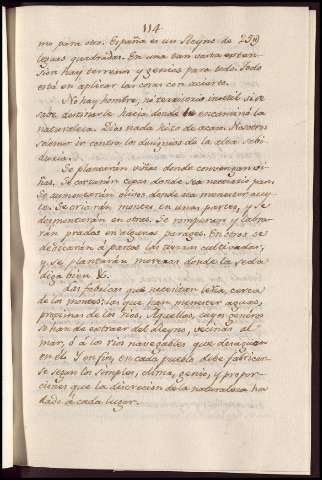 114
mo para otro. España es un Reyno de 25@
leguas quadradas. En una tan vasta exten-
sion hay terrenos, y genios para todo. Todo
está en aplicar las cosas con acierto.
No hay hombre, ni territorio inutil si se
sabe destinarle hacia donde le encaminó la
naturaleza. Dios nada hizo de acaso. Nosotros
solemos ir contra los designios de la alta sabi-
duria.
Se plantarán viñas donde convengan vi-
ñas. Se cortarán cepas donde sea necesario pan.
Se aumentarán olivos donde sea menester acey-
te. Se criarán montes en unas partes, y se
desmontarán en otras. Se romperán y labra-
rán prados en algunos parages. En otros se
dedicarán á pastos las tierras cultivadas,
y se plantarán moreras donde la seda
diga bien &.
Las fabricas que necesitan leña, cerca
de los montes: las que han menester aguas,
proximas de los rios. Aquellas, cuyos generos
se han de extraer del Reyno, vecinas al
mar, ó á los rios navegables que desaguan
en él. Y en fin, en cada pueblo debe fabricar-
se segun los simples, clima, genio, y propor-
ciones que la discrecion de la naturaleza ha
dado á cada lugar.